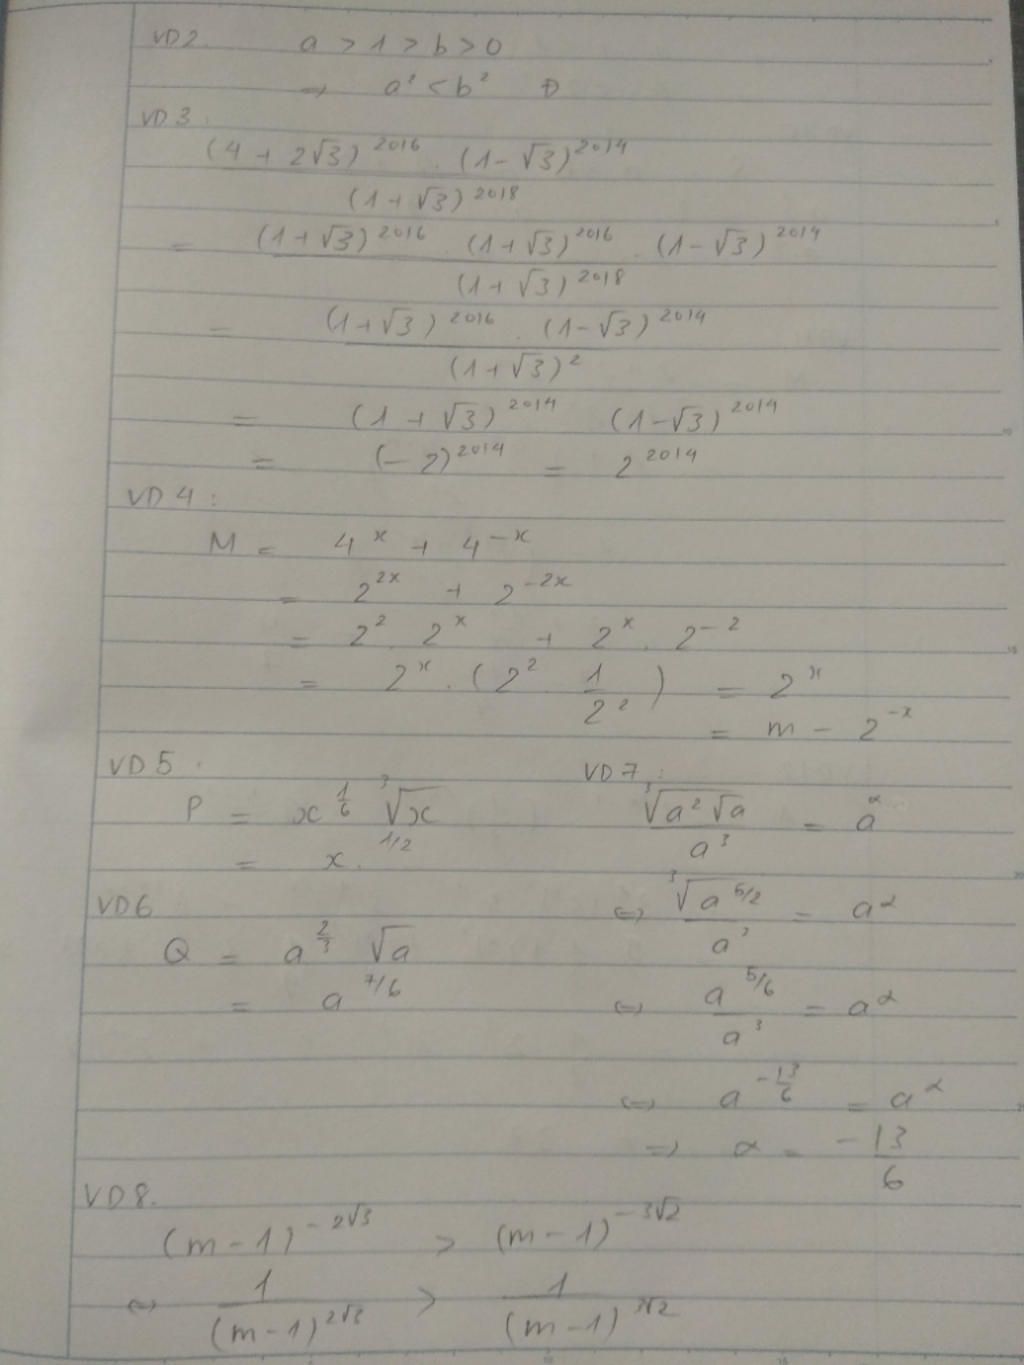 VD2. a > 1 > b > 0
⇒ a² < b² D
VD3:
(4 + 2√3)^2016 . (1 - √3)^2014
(1 + √3)^2018
= (1 + √3)^2016 . (1 + √3)^2016 . (1 - √3)^2014
(1 + √3)^2018
= (1 + √3)^2016 . (1 - √3)^2014
(1 + √3)^2
= (1 + √3)^2014 (1 - √3)^2014
= (-2)^2014 = 2^2014
VD4:
M = 4^x + 4^-x
= 2^2x + 2^-2x
= 2^2 2^x + 2^x . 2^-2
= 2^x . (2^2 1/2^2) = 2^x
= m - 2^-x
VD5.
P = x^1/6 ∛x
= x^1/2
VD6
Q = a^2/3 √a
= a^7/6
VD7:
∛(a²√a) / a³ = a^α
⇔ ∛(a^5/2) / a³ = a^α
⇔ a^5/6 / a³ = a^α
⇔ a^-13/6 = a^α
⇒ α = -13/6
VD8.
(m - 1)^-2√3 > (m - 1)^-3√2
⇔ 1/(m - 1)^2√3 > 1/(m - 1)^3√2